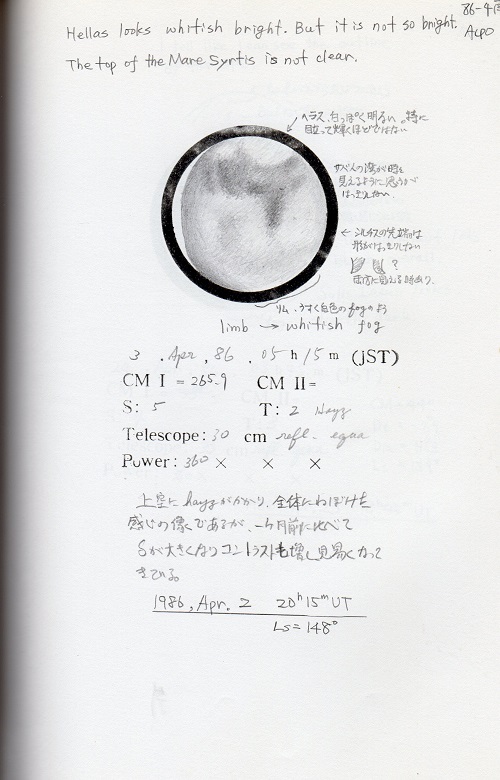 86-4
Hellas looks whitish bright. But it is not so bright.
ALPO
The top of the Mare Syrtis is not clear.
ヘラス、白っぽく明るい。特に
目立って輝くほどではない
サベんの湾が時々
見えるように思うが
はっきりしない
← シルチスの先端は
形がはっきりしない
?
両方に見える時あり。
リム、うすく白色のfogのよう
limb → whitish fog
3 . Apr , 86 . 05 h 15 m (JST)
CM I = 265.9 CM II=
S: 5 T: 2 Hayz
Telescope: 30 cm refl. equa
Power: 360 × × ×
上空に hayz がかかり、全体にねぼけた
感じの像であるが、一ヶ月前に比べて
δが大きくなりコントラストも増し見易くなって
きている。
1986, Apr. 2 20h 15m UT
Ls = 148°